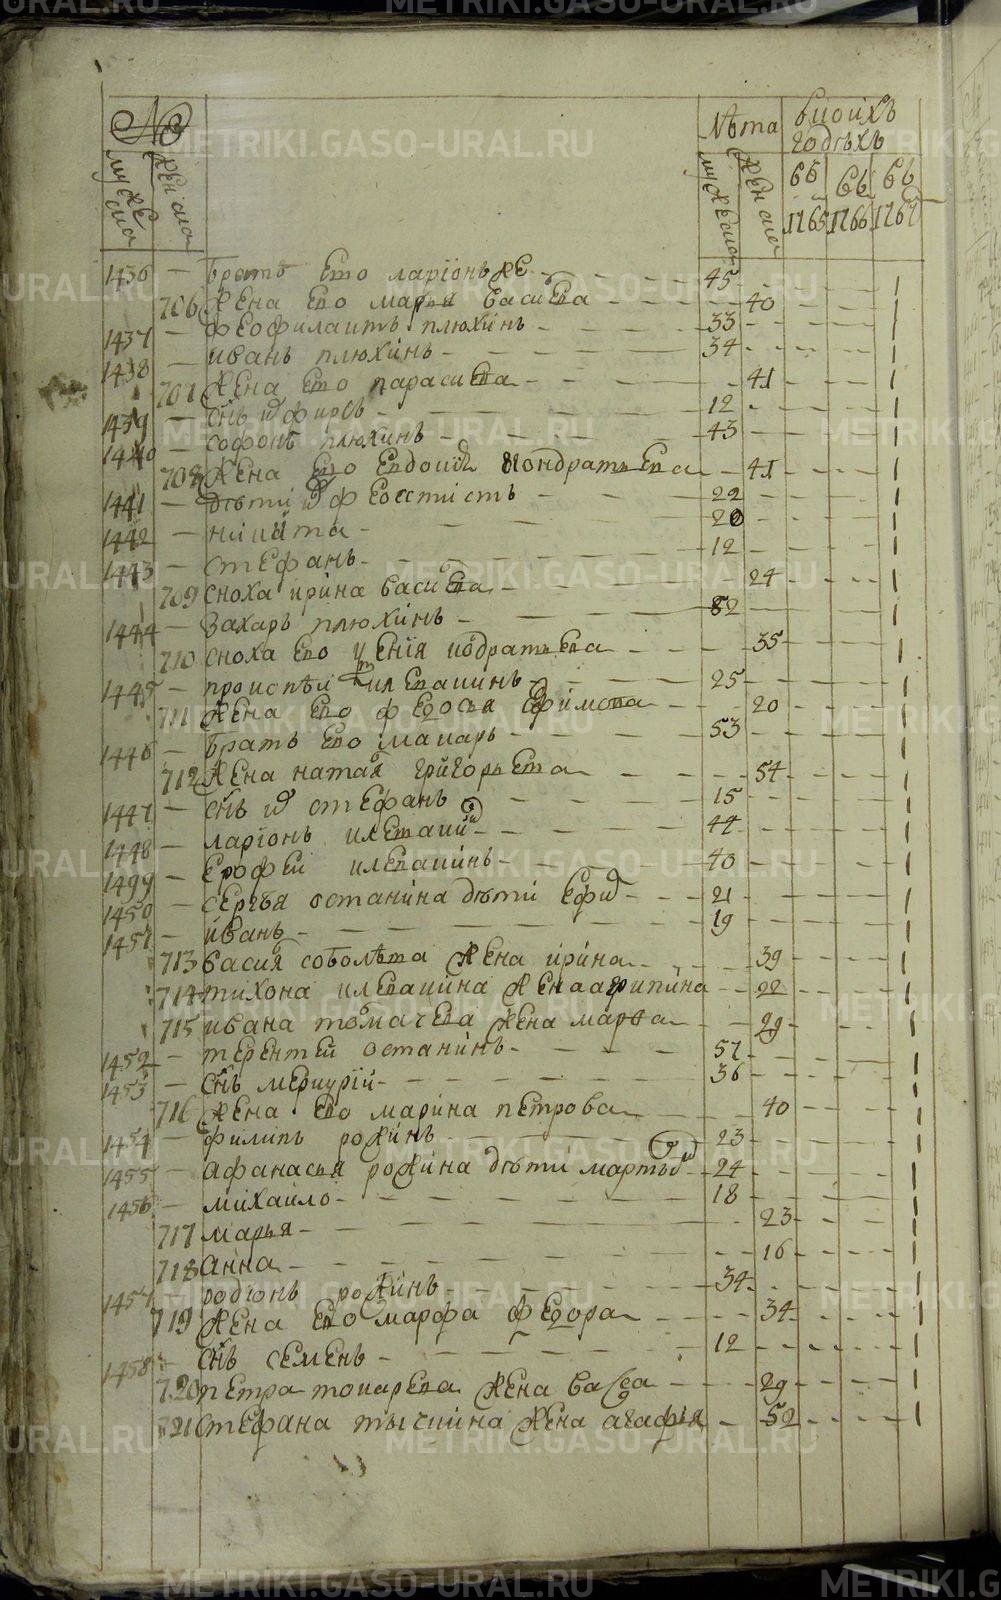 №
лѣта
вкоихъ
годѣхъ
мужеска
женска
мужеска
женска
вь 1765
вь 1766
вь 1767
1436 — братъ ево ларїонъ же — 45 — 1
706 жена ево марья васива — 40
1437 — феофилактъ плюхинъ — 33 — 1
1438 — иванъ плюхинъ — 34 — 1
707 жена ево парасква — 41 — 1
1439 — снъ — 12 — 1
1440 — софонъ плюхинъ — 43 — 1
708 жена ево евдокия кондратьева — 41 — 1
1441 — дѣти феоктистъ — 22 — 1
1442 — никита — 20 — 1
1443 — стефанъ — 12 — 1
709 сноха ирина васива — 24 — 1
1444 — захаръ плюхинъ — 82 — 1
710 сноха ево ксенїя кодратьева — 35 — 1
1445 — клевакинъ — 25 — 1
711 жена ево федосья ефимова — 20 — 1
1446 — братъ ево макаръ — 53 — 1
712 жена наталя григорьева — 54 — 1
1447 — снъ стефанъ — 15 — 1
1448 — ларїонъ клевакинъ — 44 — 1
1449 — ерофей клевакинъ — 40 — 1
1450 — сергѣя останина дѣти — 21 — 1
1451 — иванъ — 19 — 1
713 васия соболѣва жена ирина — 39 — 1
714 тихона клевакина жена агрипина — 22 — 1
715 ивана томачева жена марфа — 29 — 1
1452 — терентей останинъ — 57 — 1
1453 — снъ меркурїй — 36 — 1
716 жена ево марина петрова — 40 — 1
1454 — филипъ рожинъ — 23 — 1
1455 — афанасья рожина дѣти — 24 — 1
1456 — михайло — 18 — 1
717 марья — 23 — 1
718 анна — 16 — 1
1457 — родїонъ рожинъ — 34 — 1
719 жена ево марфа федора — 34 — 1
1458 — снъ семенъ — 12 — 1
720 петра токарева жена васса — 29 — 1
721 стефана тычкина жена агафья — 52 — 1
METRIKI.GASO-URAL.RU